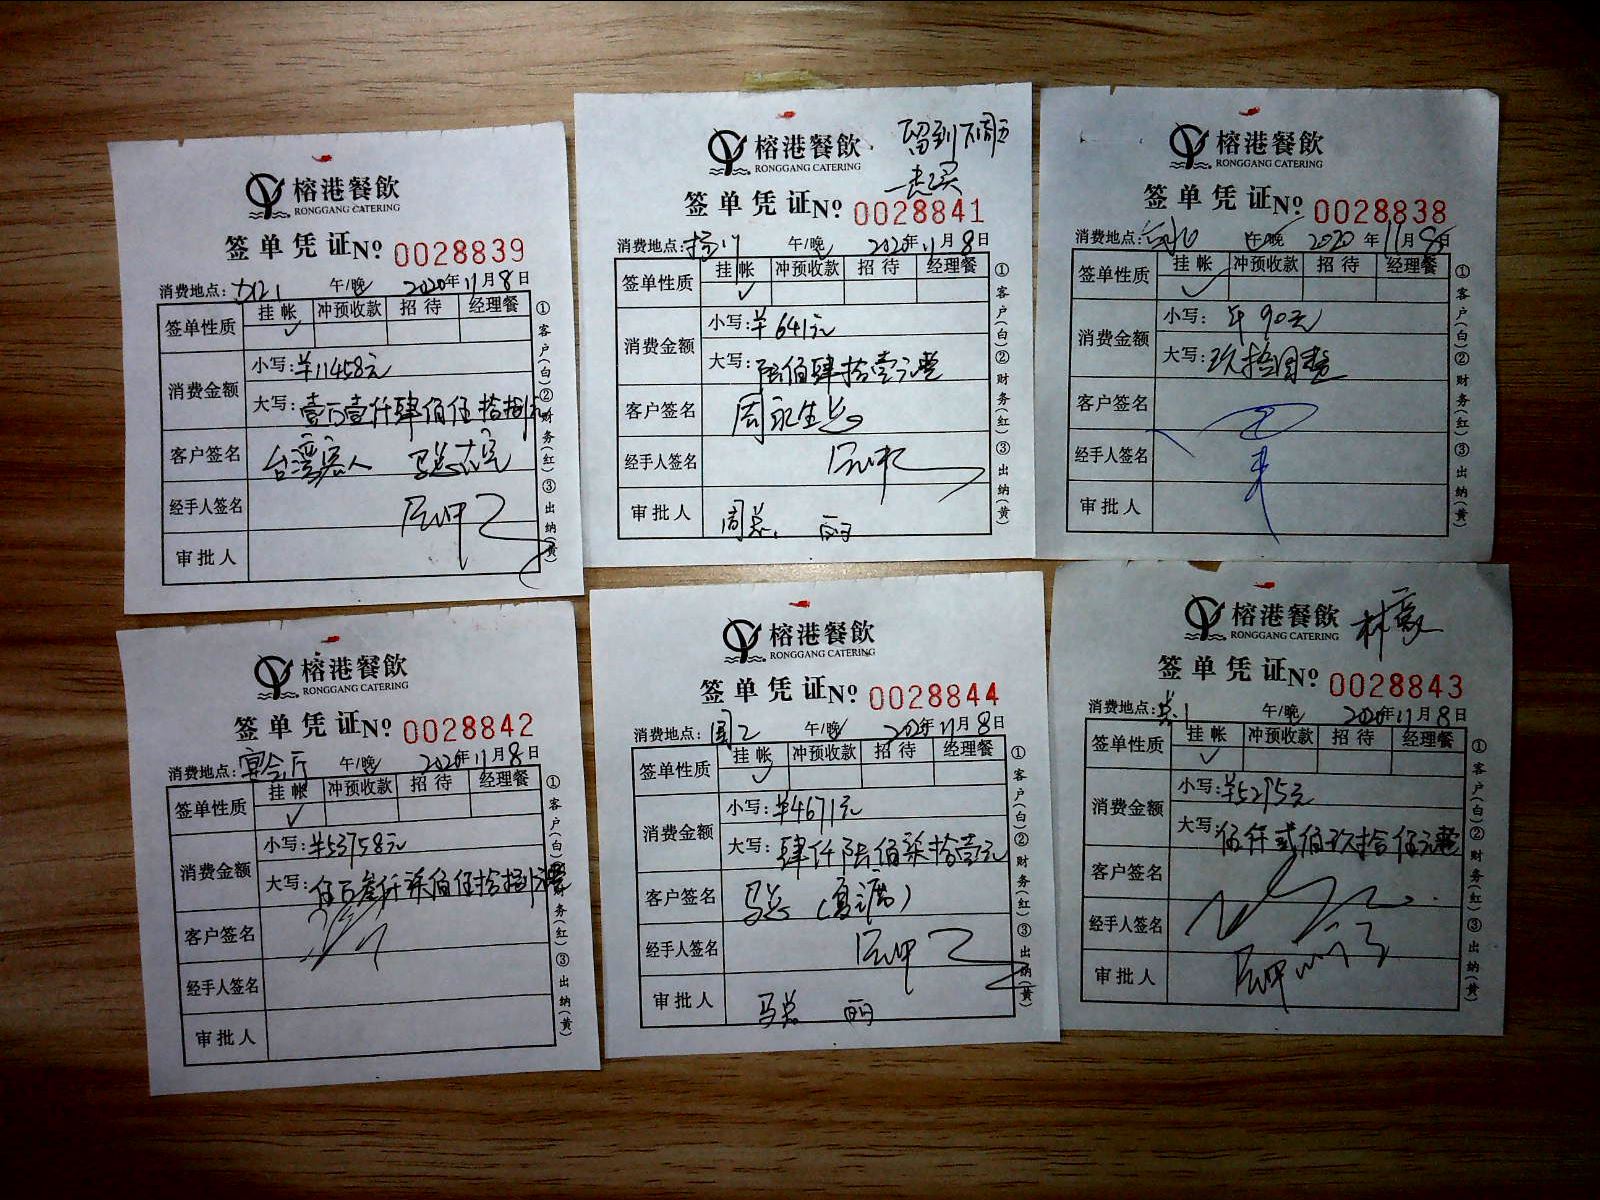 榕港餐飲
RONGGANG CATERING
签单凭证 Nº 0028839
消费地点: 午/晚 2020年11月8日
签单性质 挂帐 冲预收款 招待 经理餐
✓
消费金额 小写:¥11458元
大写:壹万壹仟肆佰伍拾捌元
客户签名 台湾客人
经手人签名
审批人
①客户(白)②财务(红)③出纳(黄)
榕港餐飲
RONGGANG CATERING
留到下周五
一起买
签单凭证 Nº 0028841
消费地点: 午/晚 2020年11月8日
签单性质 挂帐 冲预收款 招待 经理餐
✓
消费金额 小写:¥641元
大写:陆佰肆拾壹元整
客户签名 周永生
经手人签名
审批人 周总
①客户(白)②财务(红)③出纳(黄)
榕港餐飲
RONGGANG CATERING
签单凭证 Nº 0028838
消费地点: 午/晚 2020年11月8日
签单性质 挂帐 冲预收款 招待 经理餐
✓
消费金额 小写:¥90元
大写:玖拾圆整
客户签名
经手人签名
审批人
①客户(白)②财务(红)③出纳(黄)
榕港餐飲
RONGGANG CATERING
签单凭证 Nº 0028842
消费地点:宴会厅 午/晚 2020年11月8日
签单性质 挂帐 冲预收款 招待 经理餐
✓
消费金额 小写:¥53758元
大写:伍万叁仟柒佰伍拾捌元整
客户签名
经手人签名
审批人
①客户(白)②财务(红)③出纳(黄)
榕港餐飲
RONGGANG CATERING
签单凭证 Nº 0028844
消费地点: 午/晚 2020年11月8日
签单性质 挂帐 冲预收款 招待 经理餐
✓
消费金额 小写:¥4671元
大写:肆仟陆佰柒拾壹元
客户签名 马总
经手人签名
审批人 马总
①客户(白)②财务(红)③出纳(黄)
榕港餐飲
RONGGANG CATERING
签单凭证 Nº 0028843
消费地点: 午/晚 2020年11月8日
签单性质 挂帐 冲预收款 招待 经理餐
✓
消费金额 小写:¥5295元
大写:伍仟贰佰玖拾伍元整
客户签名
经手人签名
审批人
①客户(白)②财务(红)③出纳(黄)